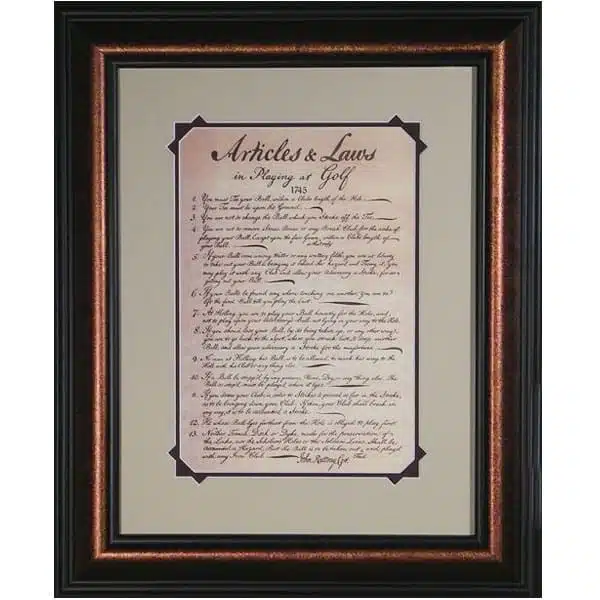 Articles & Laws
in Playing at Golf
1745
1. You must Tee your Ball, within a Clubs length of the Hole.
2. Your Tee must be upon the Ground.
3. You are not to change the Ball which you Stroke off the Tee.
4. You are not to remove Stones Bones or any Break Club, for the sake of
playing your Ball, Except upon the fair Green, within a Clubs length of
your Ball.
5. If your Ball come among Water or any watery filth, you are at liberty
to take out your Ball & bringing it behind the hazard and Teeing it, You
may play it with any Club and allow your Adversary a Stroke, for so
getting out your Ball.
6. If your Balls be found any where touching one another, You are to
lift the first Ball, till you play the last.
7. At Holling, you are to play your Ball honestly for the Hole, and,
not to play upon your Adversary's Ball, not lying in your way to the Hole.
8. If you should lose your Ball, by its being taken up, or any other way,
you are to go back to the Spot, where you struck last, & drop another
Ball, and allow your adversary a Stroke for the misfortune.
9. No man at Holling his Ball, is to be allowed, to mark his way to the
Hole with his Club or any thing else.
10. If a Ball be stopp'd by any person, Horse, Dog or any thing else, The
Ball so stop'd must be played where it lyes.
11. If you draw your Club, in order to Stroke & proceed so far in the Stroke,
as to be bringing down your Club; If then, your Club shall break in
any way, it is to be accounted a Stroke.
12. He whose Ball lyes farthest from the Hole is obliged to play first.
13. Neither Trench, Ditch or Dyke, made for the preservation of
the Links, nor the Scholars Holes or the Soldiers Lines, Shall be
accounted a Hazard, But the Ball is to be taken out, and play'd
with any Iron Club.
John Rattray, Cpt.